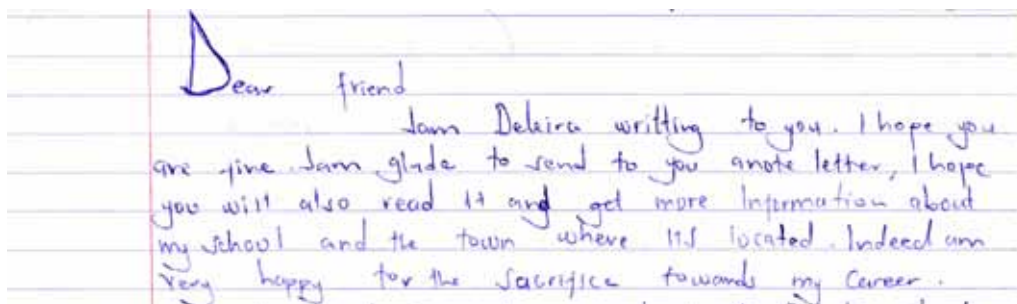 Dear friend
Iam Deleira writting to you. I hope you
are fine. Iam glade to send to you anote letter, I hope
you will also read it and get more Information about
my school and the town where its located. Indeed am
Very happy for the Sacrifice towards my Career.